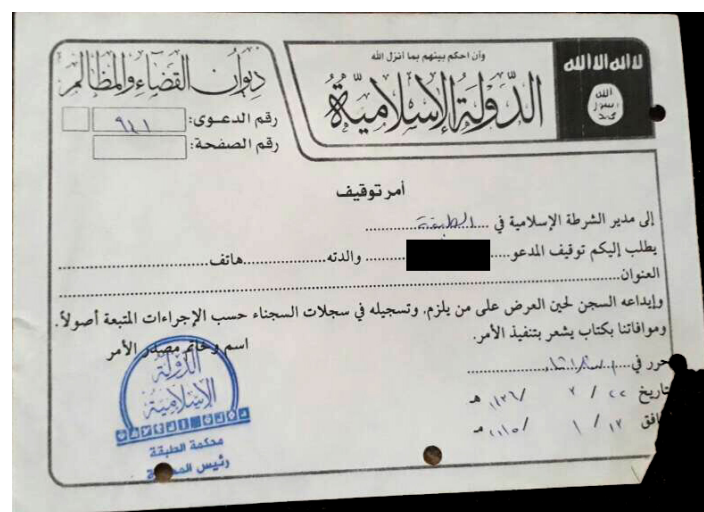 لا اله الا الله
الله
رسول
محمد
وأن احكم بينهم بما أنزل الله
الدولة الإسلامية
ديوان القضاء والمظالم
رقم الدعوى: ٩٤١
رقم الصفحة:
أمر توقيف
إلى مدير الشرطة الإسلامية في ..... الطبقة .....
يطلب إليكم توقيف المدعو ..... والدته ..... هاتف .....
العنوان .....
وإيداعه السجن لحين العرض على من يلزم، وتسجيله في سجلات السجناء حسب الإجراءات المتبعة أصولاً.
وموافاتنا بكتاب يشعر بتنفيذ الأمر.
اسم وخاتم مصدر الأمر
حرر في .....
تاريخ ٢٢ / ٣ / ١٤٣٦ هـ
افق ١٣ / ١ / ٢٠١٥ مـ
الدولة
الإسلامية
محكمة الطبقة
رئيس